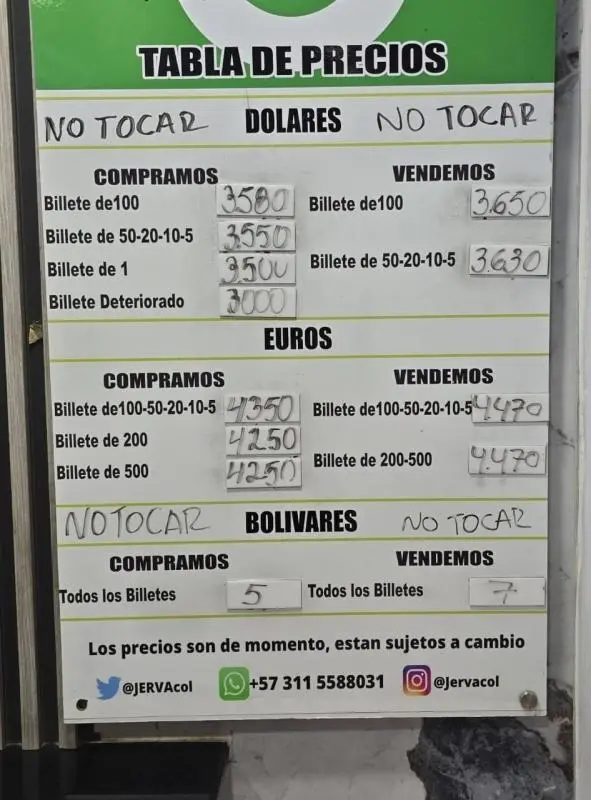 TABLA DE PRECIOS
NO TOCAR DOLARES NO TOCAR
COMPRAMOS VENDEMOS
Billete de100 3580 Billete de100 3.650
Billete de 50-20-10-5 3.550
Billete de 50-20-10-5 3.630
Billete de 1 3.500
Billete Deteriorado 3000
EUROS
COMPRAMOS VENDEMOS
Billete de100-50-20-10-5 4350 Billete de100-50-20-10-5 4.470
Billete de 200 4250
Billete de 200-500 4.470
Billete de 500 4250
NO TOCAR BOLIVARES NO TOCAR
COMPRAMOS VENDEMOS
Todos los Billetes 5 Todos los Billetes 7
Los precios son de momento, estan sujetos a cambio
@JERVAcol +57 311 5588031 @Jervacol